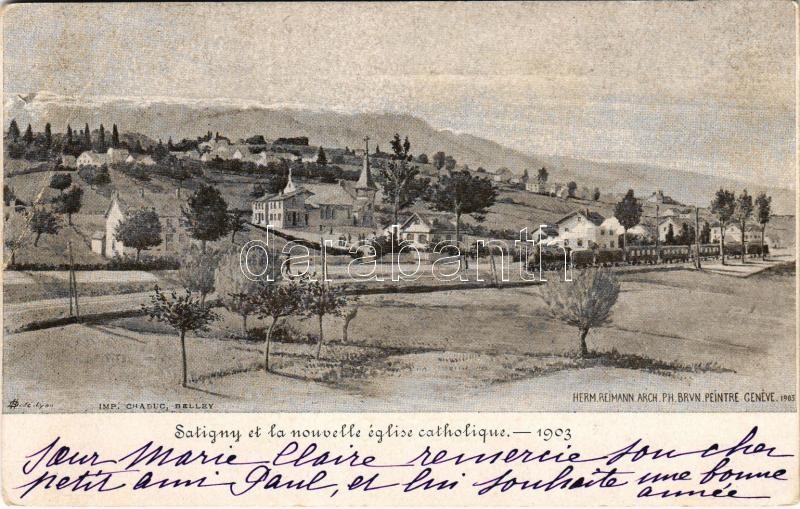 darabanth
de Lyon
IMP. CHADUC, BELLEY
HERM. REIMANN ARCH. PH. BRVN. PEINTRE GENÈVE. 1903
Satigny et la nouvelle église catholique. — 1903
Sœur Marie Claire remercie son cher
petit ami Paul, et lui souhaite une bonne
année